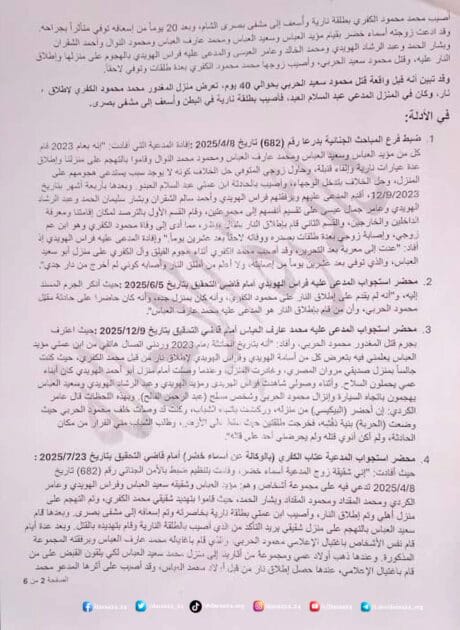 أصيب محمد محمود الكفري بطلقة نارية وأسعف إلى مشفى بصرى الشام، وبعد 20 يوماً من إسعافه توفي متأثراً بجراحه.
وقد ادعت زوجته أسماء خضر بقيام مؤيد العباس وسعيد العباس ومحمد عارف العباس ومحمود النوال وأحمد الشقران
وبشار الحمد وعبد الرشاد الهويدي ومحمد الخالد وعامر العيسى والمدعى عليه فراس الهويدي بالهجوم على منزلها وإطلاق
النار عليه، وقتل محمود سعيد الحربي، وأصيب زوجها محمد محمود الكفري بعدة طلقات وتوفي لاحقاً.
وقد تبين أنه قبل واقعة قتل محمود سعيد الحربي بحوالي 40 يوم، تعرض منزل المغدور محمد محمود الكفري لإطلاق
نار، وكان في المنزل المدعي عبد السلام العبد، فأصيب بطلقة نارية في البطن وأسعف إلى مشفى بصرى.
في الأدلة:
1. ضبط فرع المباحث الجنائية بدرعا رقم (682) تاريخ 2025/4/8: إفادة المدعية التي أفادت: "إنه بعام 2023 قام
كل من مؤيد العباس وسعيد العباس ومحمد عارف العباس ومحمود محمد النوال وقاموا بالتهجم على منزلنا وإطلاق
عدة عيارات نارية وإلقاء قنبلة، وحاول زوجي المتوفي حل الخلاف كونه لا يوجد سبب يستدعي هجومهم على
المنزل، وحل الخلاف بتدخل الوجهاء، وأصيب بالحادثة ابن عمتي عبد السلام وبعدها بأربعة أشهر بتاريخ
12/9/2023، أقدم المدعى عليهم وبرفقتهم فراس الهويدي وأحمد سالم الشقران وبشار سليمان الحمد وعبد الرشاد
الهويدي وعامر جمال عيسى على تقسيم أنفسهم إلى مجموعتين، وقام القسم الأول بالترصد لمكان إقامتنا ومعرفة
الداخلين والخارجين، والقسم الثاني قام بإطلاق النار مما أدى إلى وفاة محمود الحربي وهو ابن عم
زوجي، وإصابة زوجي بعدة طلقات بصدره ووفاته لاحقاً بعد عشرين يوماً." وإفادة المدعى عليه فراس الهويدي إذ
أفاد: "عدت إلى معربة بعد التحرير، وقد أصيب محمد الكفري أثناء هجوم الفيلق وآل الكفري على منزل أبو سعيد
العباس، والذي توفي بعد عشرين يوماً من إصابته، ولا أعلم من أطلق النار وأصابه كوني لم أخرج من دار جدي".
2. محضر استجواب المدعى عليه فراس الهويدي أمام قاضي التحقيق بتاريخ 2025/6/5: حيث أنكر الجرم المسند
إليه، و"أنه لم يقدم على إطلاق النار على محمود الكفري، وأنه كان بمنزل جده، وأنه كان حاضراً على حادثة مقتل
محمود الحربي، وأن من قام بإطلاق النار هو المدعى عليه محمد عارف العباس".
3. محضر استجواب المدعى عليه محمد العارف العباس أمام قاضي التحقيق بتاريخ 2025/12/9: حيث اعترف
بجرم قتل المغدور محمود الحربي، وأفاد: "أنه بتاريخ الحادثة بعام 2023 وردني اتصال هاتفي من ابن عمي مؤيد
العباس يعلمني فيه بتعرض كل من أسامة الهويدي وفراس الهويدي لإطلاق نار من قبل محمد الكفري، حيث كنت
جالساً بمنزل صديقي مروان المصري، وغادرت المنزل، وعندما وصلت أمام منزل أبو أحمد الهويدي كان أبناء
عمي يحملون السلاح. وأثناء وصولي شاهدت فراس الهويدي ومؤيد الهويدي وعبد الرشاد الهويدي وسعيد العباس
يهجمون باتجاه السيارة وإنزال محمود الحربي وشخص مسلح (عبد الرحمن الفالح). وبهذه اللحظات قال عامر
الكردي: أحضر (البيكيسي) من منزله، وركضت باتجاه الشباب، وكنت قد وصلت خلف محمود الحربي حيث
وضعت (الحربة) بنية دفشه، فخرجت طلقتين حيث سقط على الأرض، وطالب الشباب مني الفرار من مكان
الحادثة، ولم أكن أنوي قتله ولم يحرضني أحد على قتله".
4. محضر استجواب المدعية عتاب الكفري (بالوكالة عن أسماء خضر) أمام قاضي التحقيق بتاريخ 2025/7/23:
حيث أفادت: "إني شقيقة زوج المدعية أسماء خضر، وقد أقدمت على تنظيم ضبط بالأمن الجنائي رقم
2025/4/8 تدعي فيه على مجموعة أشخاص وهم: مؤيد العباس وشقيقه سعيد العباس وفراس الهويدي وعامر
الكردي ومحمد المقداد ومحمود المقداد وبشار الحمد، حيث قاموا بتهديد شقيقي محمد الكفري، وتم التهجم على
منزل أهلي وتم إطلاق النار، وأصيب ابن عمتي بطلقة نارية بخاصرته وتم إسعافه إلى مشفى بصرى. وبعدها قام
سعيد العباس بالتهجم على منزل شقيقي يريد التأكد من الذي أصيب بالطلقة النارية وقام بتهديده بالقتل. وبعد عدة أيام
قام نفس الأشخاص باغتيال الإعلامي محمود الحربي والذي قام باغتياله محمد عارف العباس وبرفقته المجموعة
المذكورة. وعندها ذهب أولاد عمي ومجموعة من أقاربه إلى منزل محمد سعيد العباس لكي يلقون القبض على من
قام باغتيال الإعلامي، عندها حصل إطلاق نار من قبل أولاد محمد العباس، وقد أصيب على أثرها المدعو محمد
الصفحة 2 من 6